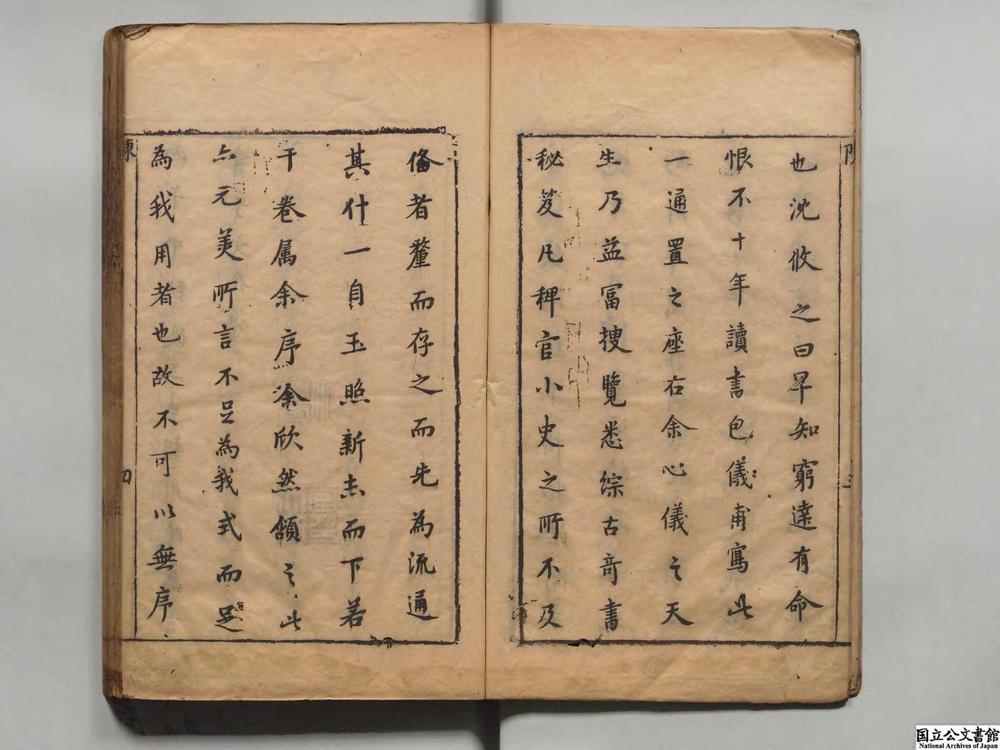 也沈攸之曰早知窮達有命
恨不十年讀書包儀甫寫此
一通置之座右余心儀之天
生乃益富搜覽悉綜古奇書
秘笈凡稗官小史之所不及
俻者釐而存之而先為流通
其什一自玉照新志而下若
干卷属余序余欣然頷之此
亦元美所言不足為我式而足
為我用者也故不可以無序
陳
四
国立公文書館
National Archives of Japan